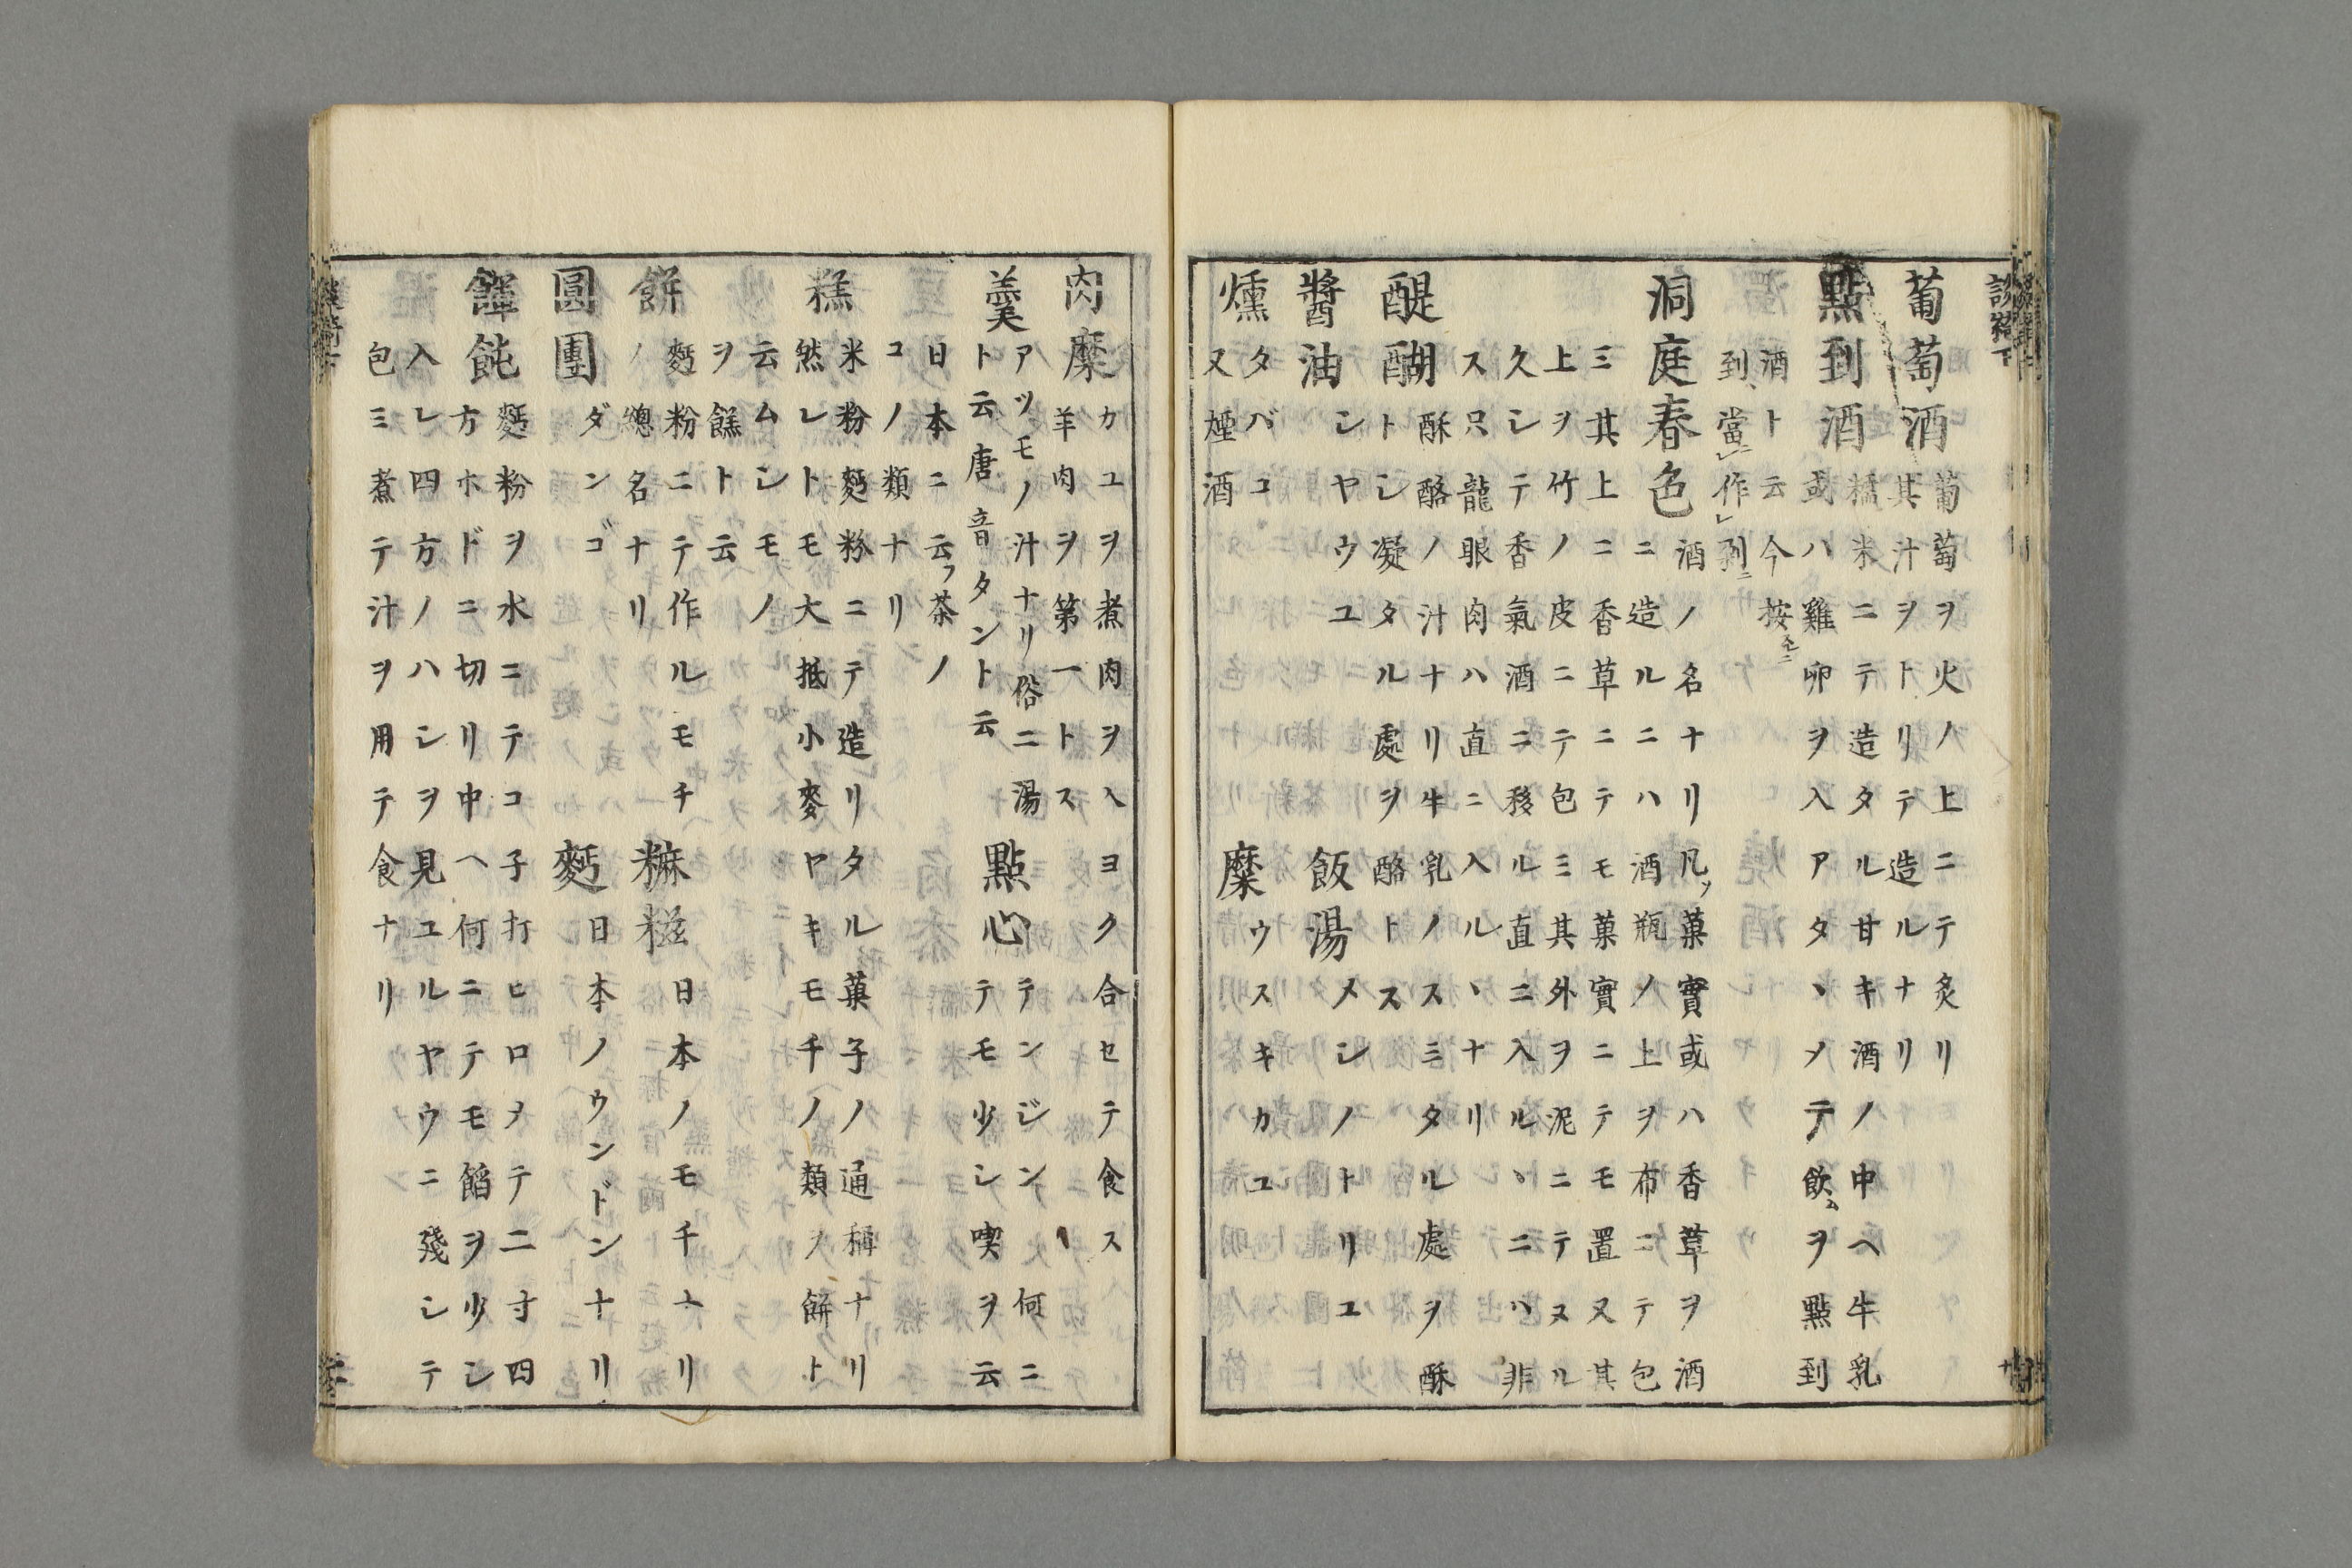 葡萄酒 葡萄ヲ火ノ上ニテ炙リ
其汁ヲトリテ造ルナリ
點到酒 糯米ニテ造タル甘キ酒ノ中ヘ牛乳
或ハ雞卵ヲ入アタヽメテ飲ムヲ點到
酒ト云今按スルニ
到當作剅
洞庭春色 酒ノ名ナリ凡ソ菓實或ハ香草ヲ酒
ニ造ルニハ酒瓶ノ上ヲ布ニテ包
ミ其上ニ香草ニテモ菓實ニテモ置又其
上ヲ竹ノ皮ニテ包ミ其外ヲ泥ニテヌル
久シテ香氣酒ニ移ル直ニ入ルヽニハ非
ス只龍眼肉ハ直ニ入ルヽナリ
醍醐 酥酪ノ汁ナリ牛乳ノスミタル處ヲ酥
トシ凝タル處ヲ酪トス
醬油 シヤウユ
飯湯 メシノトリユ
燻 タバコ
又煙酒
糜 ウスキカユ
肉糜 カユヲ煮肉ヲヘヨク合セテ食ス
羊肉ヲ第一トス
羹 アツモノ汁ナリ俗ニ湯
ト云唐音タント云
點心 テンジン何ニ
テモ少シ喫ヲ云
日本ニ云フ茶ノ
コノ類ナリ
糕 米粉麪粉ニテ造リタル菓子ノ通稱ナリ
然レトモ大抵小麥ヤキモチノ類ヲ餅ト
云ムシモノ
ヲ餻ト云
餅 麪粉ニテ作ルモチ
ノ總名ナリ
糍 日本ノモチナリ
圓團 ダンゴ
麪 日本ノウンドンナリ
餛飩 麪粉ヲ水ニテコ子打ヒロメテ二寸四
方ホドニ切リ中ヘ何ニテモ餡ヲ少シ
入レ四方ノハシヲ見ユルヤウニ殘シテ
包ミ煮テ汁ヲ用テ食ナリ